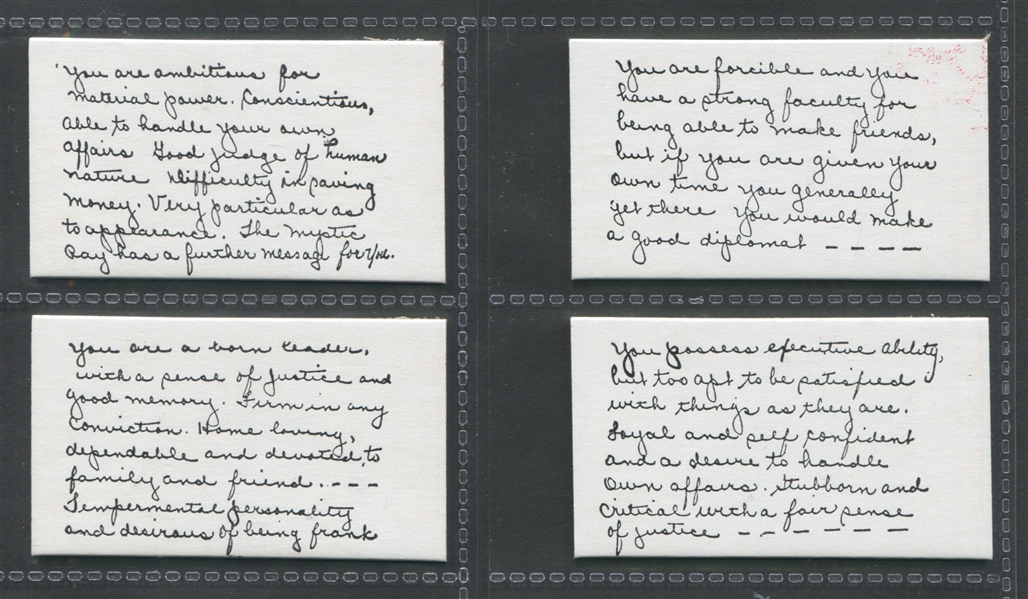 You are ambitious for
material power. Conscientious,
able to handle your own
affairs Good judge of human
nature Difficulty in saving
money. Very particular as
to appearance. The Mystic
Ray has a further message for
You are forcible and you
have a strong faculty for
being able to make friends,
but if you are given your
own time you generally
get there you would make
a good diplomat - - - -
You are a born leader,
with a sense of justice and
good memory. Firm in any
conviction. Home loving,
dependable and devoted to
family and friend. - - -
Tempermental personality
and desirous of being frank
You possess executive ability,
but too apt to be satisfied
with things as they are.
Loyal and self confident
and a desire to handle
own affairs. Stubborn and
critical with a fair sense
of justice - - - - - -